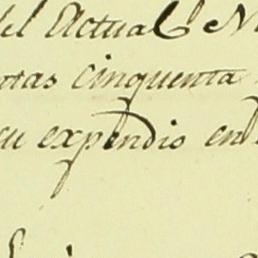 del Actual N
ntas cinquenta
su expendio en